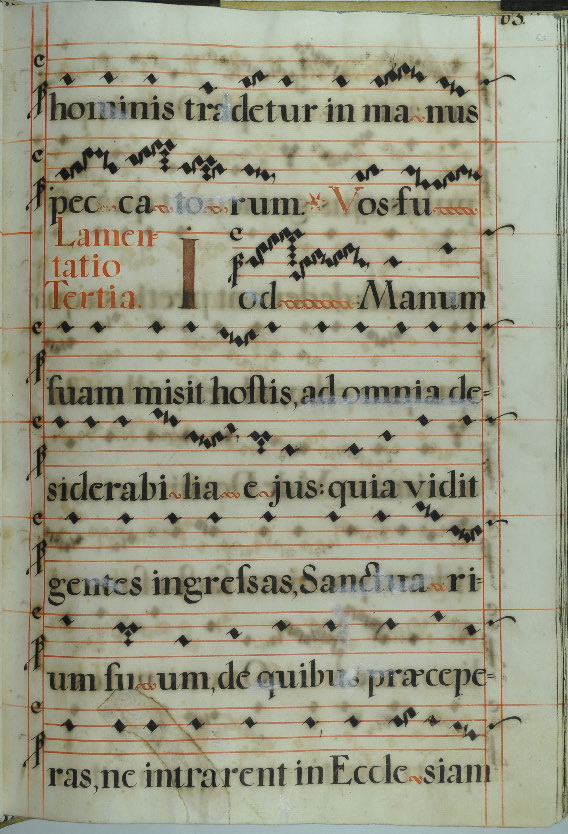 63.
hominis tradetur in manus
peccatorum. * Vos fu
Lamen-
tatio
Tertia.
Iod Manum
suam misit hostis, ad omnia de=
siderabilia ejus: quia vidit
gentes ingressas, Sanctuari=
um suum, de quibus præcepe=
ras, ne intrarent in Ecclesiam